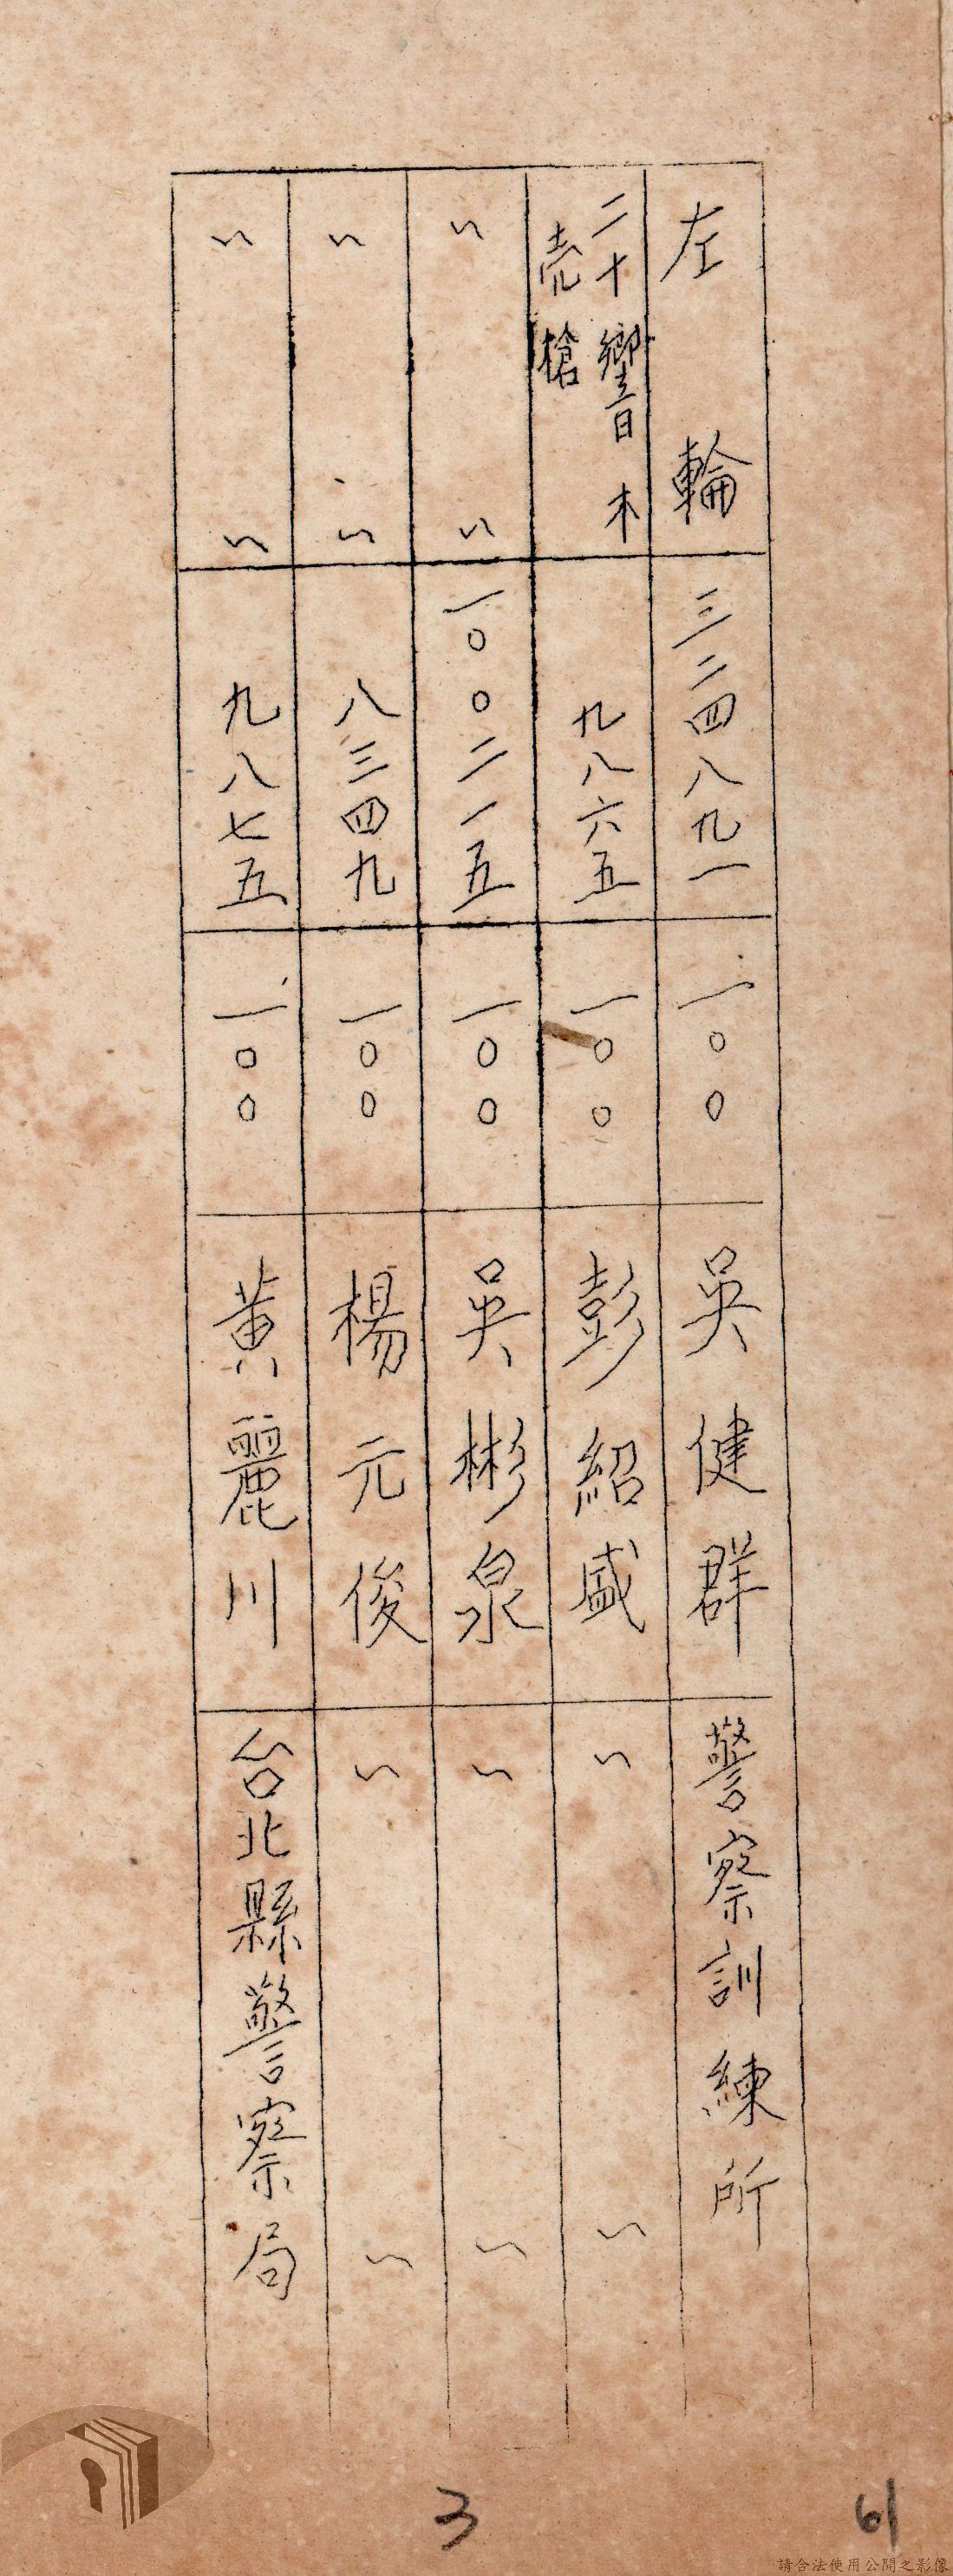 左輪 三二四八九一 一〇〇 吳健群 警察訓練所
二十響木壳槍 九八六五 一〇〇 彭紹盛 〃 〃
〃 〃 一〇〇二一五 一〇〇 吳彬泉 〃 〃
〃 〃 八三四九 一〇〇 楊元俊 〃 〃
〃 〃 九八七五 一〇〇 黃麗川 台北縣警察局
3
61
請合法使用公開之影像